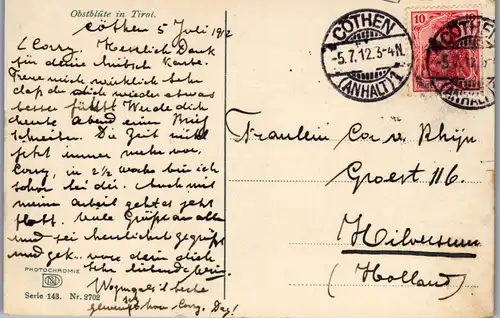 Obstblüte in Tirol.
Cöthen 5 Juli 1912
L Corry. Herzlich Dank
für deine hübsch Karte.
Freue mich wirklich sehr
daß du dich wieder etwas
besser fühlst. Werde dich
heute abend einen Brief
schreiben. Die Zeit
jetzt immer mehr vor,
Corry, in 2 1/2 woche bin ich
schon bei dir. Auch mit
meine Arbeit geht es jetzt
flott. Viele Grüße an allen
und sei herzlichst gegrüßt
und gek. von dein dich
sehr liebende
Corry. Dag!
PHOTOCHROMIE
Serie 143. Nr. 2702
CÖTHEN
-5.7.12.3-4N.
(ANHALT) 1
10
CÖTHEN
-5.7.12.3
(ANHALT)
Fräulein Cor v. Rhijn
Groest 116.
Hilversum
(Holland)